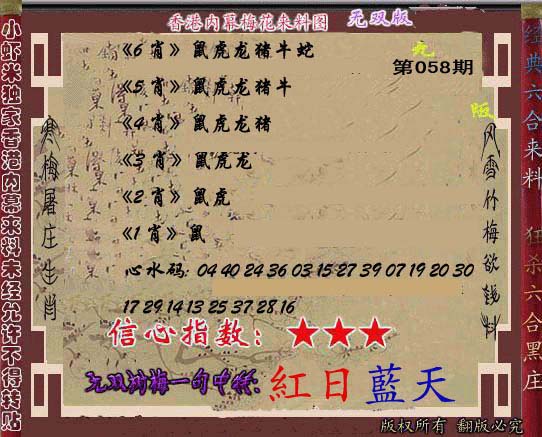 香港内幕梅花来料图 无双版
九
第058期
陌
《6 肖》 鼠虎龙猪牛蛇
《5 肖》 鼠虎龙猪牛
《4 肖》 鼠虎龙猪
《3 肖》 鼠虎龙
《2 肖》 鼠虎
《1 肖》 鼠
心水码: 04 40 24 36 03 15 27 39 07 19 20 30
17 29 14 13 25 37 28 16
信心指数: ★★★
无双神梅一句中特: 紅日藍天
版权所有 翻版必究
小虾米独家香港内幕来料未经允许不得转贴
寒梅屠庄生肖
风雪竹梅欲钱料
经典六合来料
狂杀六合黑庄